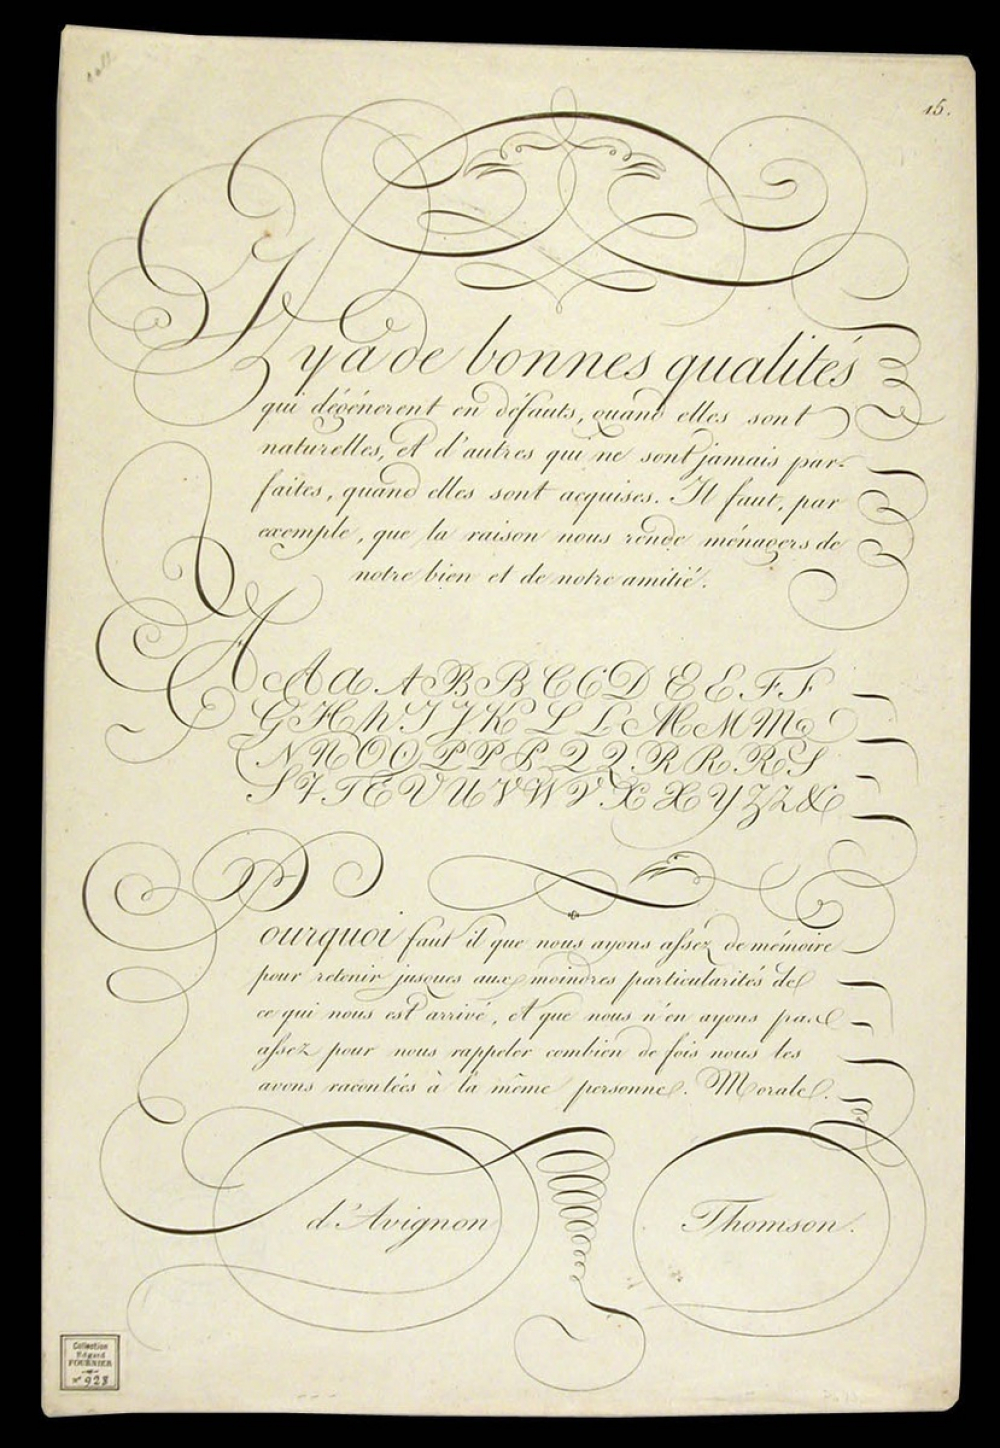 15.
Il y a de bonnes qualités
qui dégénerent en défauts, quand elles sont
naturelles, et d'autres qui ne sont jamais par-
faites, quand elles sont acquises. Il faut, par
exemple, que la raison nous rende ménagers de
notre bien et de notre amitié.
A A a A B B C C D E E F F
G H h I J K L L M M M
N N O O P P P Q Q R R R S
S T T T U U V W V X X Y Z Z &
Pourquoi faut il que nous ayons assez de mémoire
pour retenir jusques aux moindres particularités de
ce qui nous est arrivé, et que nous n'en ayons pas
assez pour nous rappeler combien de fois nous les
avons racontées à la même personne. Morale.
d'Avignon
Thomson.
Collection
Edgard
FOURNIER
N° 928